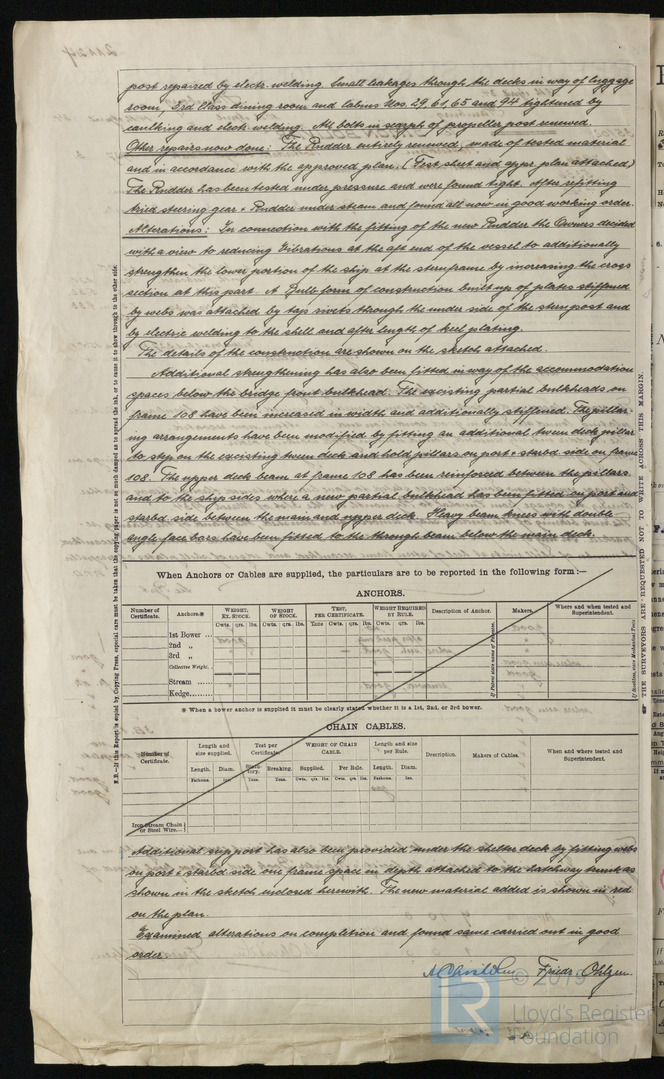 post repaired by electr. welding. Small leakages through the decks in way of luggage
room, 3rd Class dining room and cabins Nos. 29, 61, 65 and 94 tightened by
caulking and electr. welding. All bolts in scarph of propeller post renewed.
Other repairs now done: The Rudder entirely renewed, made of tested material
and in accordance with the approved plan. (Test sheet and appr. plan attached)
The Rudder has been tested under pressure and were found tight. After refitting
tried steering gear & Rudder under steam and found all now in good working order.
Alterations: In connection with the fitting of the new Rudder the Owners decided
with a view to reducing Vibrations at the aft end of the vessel to additionally
strengthen the lower portion of the ship at the sternframe by increasing the cross
section at this part. A Bulb form of construction built up of plates stiffened
by webs was attached by tap rivets through the under side of the sternpost and
by electric welding to the shell and after length of keel plating.
The details of the construction are shown on the sketch attached
Additional strengthening has also been fitted in way of the accommodation
spaces below the bridge front bulkhead. The excisting partial bulkheads on
frame 108 have been increased in width and additionally stiffened. The pillar-
ing arrangements have been modified by fitting an additional tween deck pillar
to step on the excisting tween deck and hold pillars on port & starbd side on frame
108. The upper deck beam at frame 108 has been reinforced between the pillars
and to the ship sides where a new partial bulkhead has been fitted on port and
starbd side between the main and upper deck. Heavy beam knees with double
angle face bars have been fitted to the through beam below the main deck.
When Anchors or Cables are supplied, the particulars are to be reported in the following form:—
ANCHORS.
Number of Certificate. Anchors.* WEIGHT, EX. STOCK. WEIGHT OF STOCK. TEST, PER CERTIFICATE. WEIGHT REQUIRED BY RULE. Description of Anchor. Makers. Where and when tested and Superintendent.
Cwts. qrs. lbs. Cwts. qrs. lbs. Tons Cwts. qrs. lbs. Cwts. qrs. lbs.
1st Bower ...
2nd „
3rd „
Collective Weight.
Stream ......
Kedge.......
* When a bower anchor is supplied it must be clearly stated whether it is a 1st, 2nd, or 3rd bower.
CHAIN CABLES.
Number of Certificate. Length and size supplied. Test per Certificate. WEIGHT OF CHAIN CABLE. Length and size per Rule. Description. Makers of Cables. When and where tested and Superintendent.
Length. Diam. Statutory. Breaking. Supplied. Per Rule. Length. Diam.
Fathoms. Ins. Tons. Tons. Cwts. qrs. lbs. Cwts. qrs. lbs. Fathoms. Ins.
Iron Stream Chain or Steel Wire...
Additional support has also been provided under the shelter deck by fitting webs
on port & starbd side one frame space in depth attached to the hatchway trunk as
shown in the sketch inclosed herewith. The new material added is shown in red
on the plan.
Examined alterations on completion and found same carried out in good
order.
Friedr. Ohlzen.
THE SURVEYORS ARE REQUESTED NOT TO WRITE ACROSS THIS MARGIN.
© 2019
Lloyd's Register
Foundation